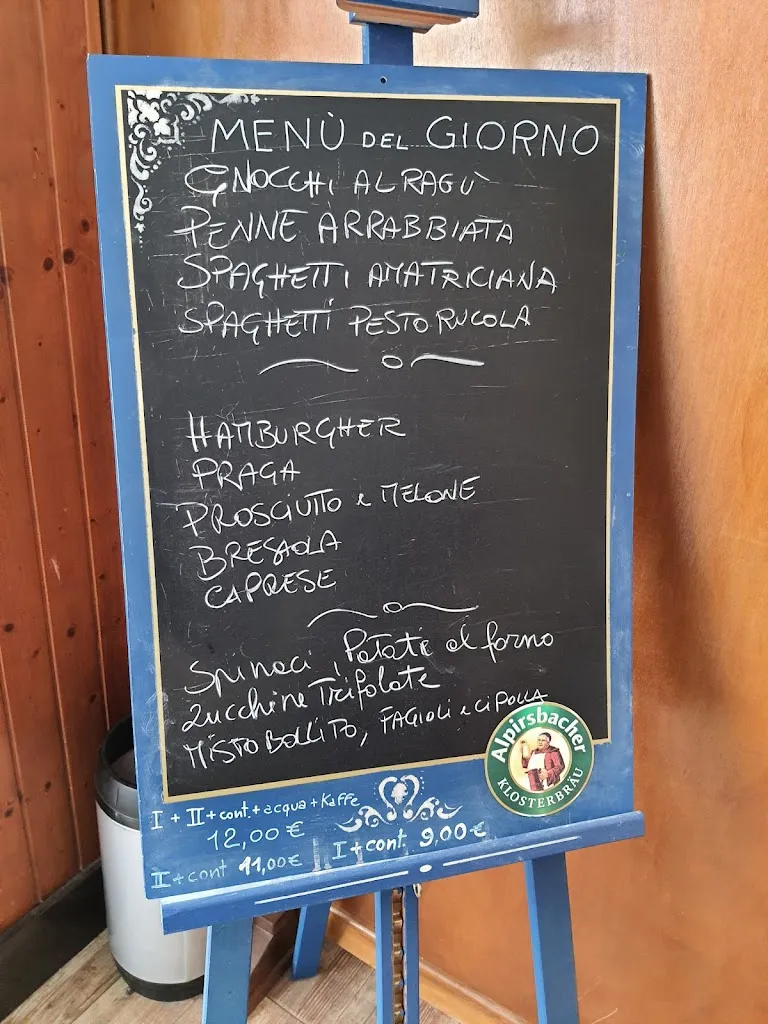 MENÙ DEL GIORNO
GNOCCHI AL RAGÙ
PENNE ARRABBIATA
SPAGHETTI AMATRICIANA
SPAGHETTI PESTO RUCOLA
HAMBURGHER
PRAGA
PROSCIUTTO e MELONE
BRESAOLA
CAPRESE
Spinaci, Patate al forno
Zucchine Trifolate
MISTO BOLLITO, FAGIOLI e CIPOLLA
Alpirsbacher
KLOSTERBRÄU
I + II + cont. + acqua + Kaffe
12,00 €
I + cont. 9,00 €
II + cont 11,00 €